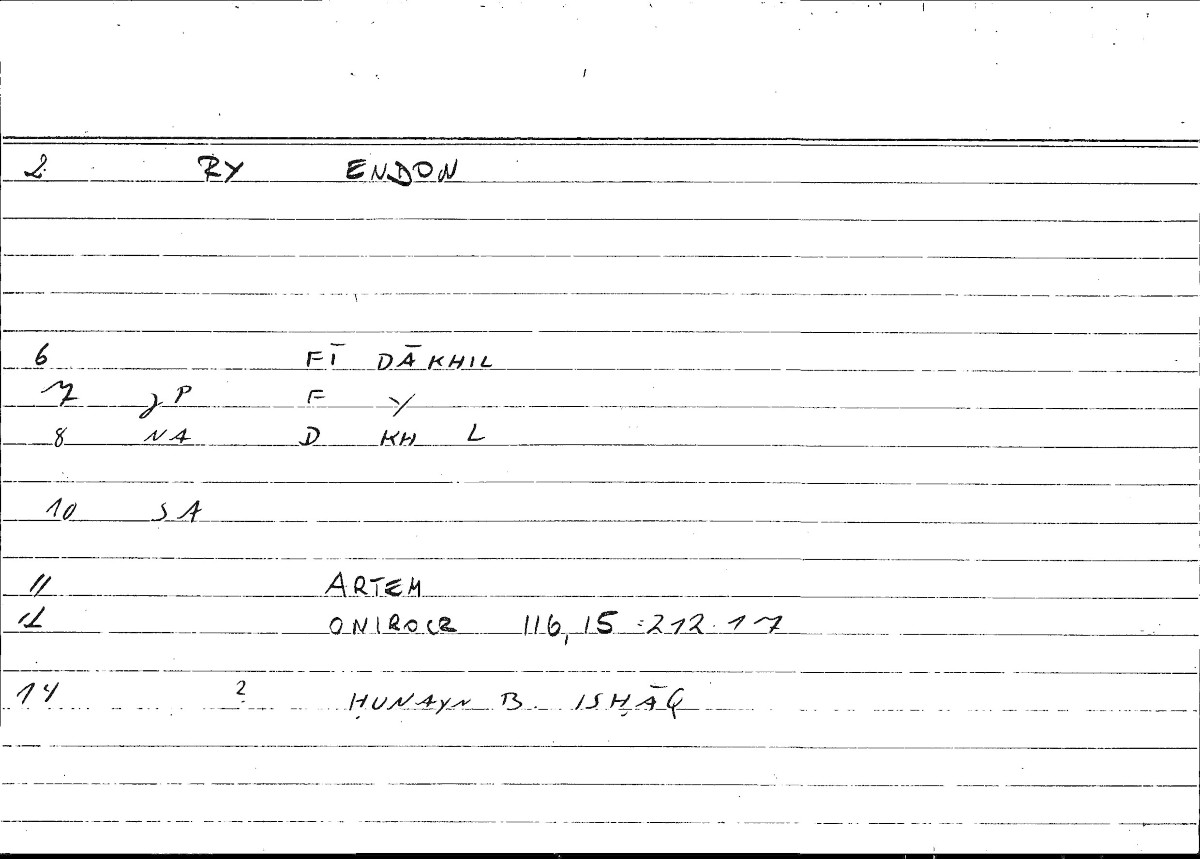 2 RY ENDON
6 FĪ DĀKHIL
7 P F Y
8 NA D KH L
10 SA
11 ARTEM
12 ONIROCR 116,15 :212.17
14 2 ḤUNAYN B. ISḤĀQ